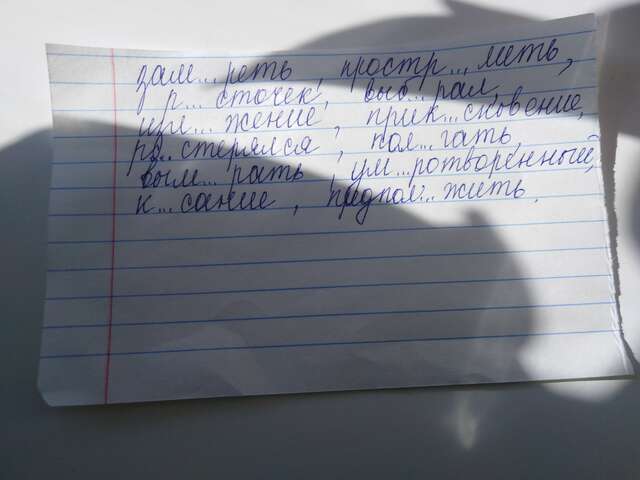 зам...реть, простр...леть,
р...сточек, выб...рал,
изл...жение, прик...сновение,
ра..стерялся, пол...гать,
вым...рать, ум...ротворенный,
к...сание, предпол...жить.